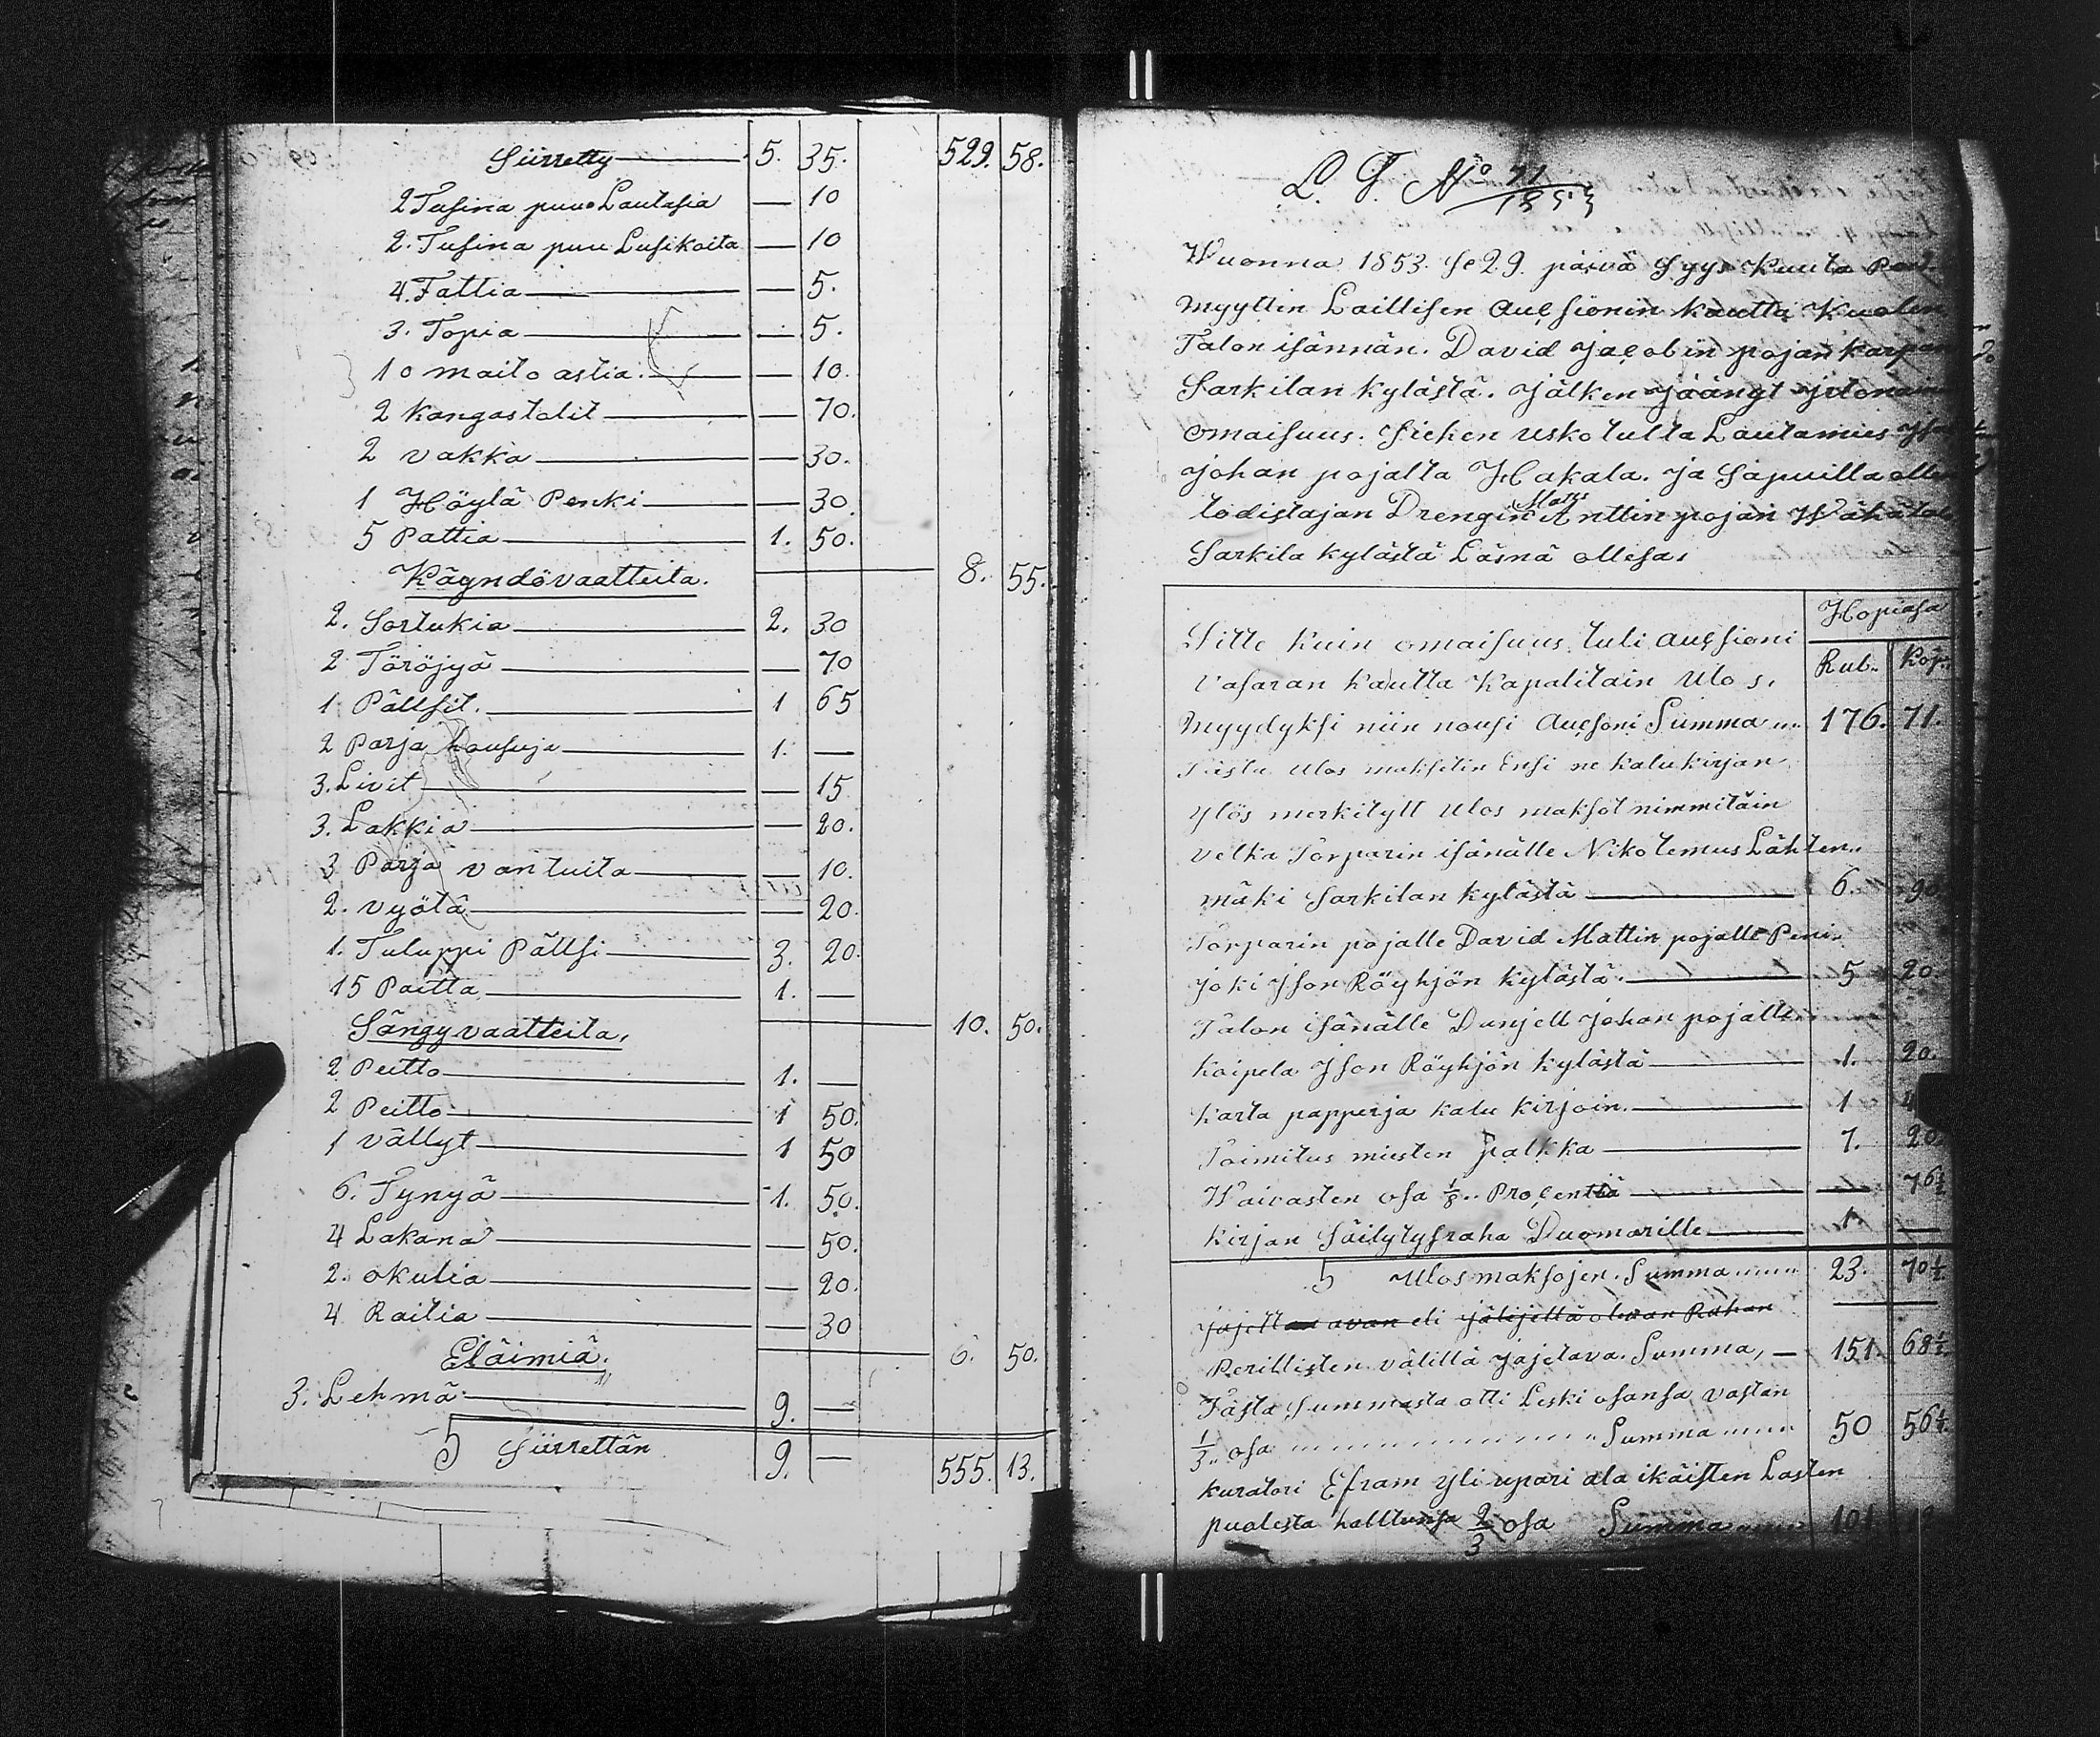 Siirretty 5. 35. 529. 58.
2 Tusina puu Lautasia — 10
2. Tusina puu Lusikoita — 10
4. Fattia — 5.
3. Topia — 5.
10 maito astia — 10.
2 kangastolit — 70.
2 vakka — 30.
1 Höylä Penki — 30.
5 Pattia 1. 50.
Käyndövaatteita. 8. 55.
2. Sortukia 2. 30
2 Töröjyä — 70
1 Pällsit. 1 65
2 Parja housuja 1. —
3. Livit — 15
3. Lakkia — 20.
3 Parja vantuita — 10.
2. vyötä — 20.
1. Tuluppi Pällsi 3. 20.
15 Paitta 1. —
Sängyvaatteita, 10. 50.
2 Peitto 1. —
2 Peitto 1 50.
1 vällyt 1 50
6. Tynyä 1. 50.
4 Lakana — 50.
2. okulia — 20.
4 Raitia — 30
Eläimiä. 6. 50.
3. Lehmä 9. —
Siirrettän 9. — 555. 13.
L. T. No 71/1853
Wuonna 1853. se 29. päivä Syys Kuuta
myyttin Laillisen Aucsionin kautta Kuolen
Talon isännän. David Jacobin pojan
Sarkilan kylästä. Jälken jäängt jrtonam
omaisuus. Siehen uskotulta Lautamies
Johan pojalta Hakala. ja Sapuilla olle
todistajan Drengin Matts Anttin pojan Wähätal
Sarkila kylästä Läsnä ollesa.
Hopiasa
Sitte kuin omaisuus tuli aucsioni Rub. Kop.
vasaran kautta kapalitain Ulos.
myydyksi niin nousi Aucsoni Summa 176. 71.
Tästä Ulos maksetin Ensi ne kalukirjan
ylös merkityt Ulos maksot nimmitäin
velka Torparin isänälle Nikotemus Lähten..
mäki Sarkilan kylästä 6. 90
Torparin pojalle David Mattin pojalle Peni.
joki Json Röyhjön kylästä 5 20
Talon isänälle Danjell Johan pojalle
Kaipela Json Röyhjön kylästä 1. 20.
karta papperja kalu kirjoin. 1
Toimitus miesten palkka 7. 20
Waivasten osa 1/8.. Procenttiä — 76 1/2
kirjan Säilytysraha Duomarille 1 —
Ulosmaksojen. Summa 23. 70 1/2
jajett avan eli jälijellä olevan Rahan
Perillisten välillä jajetava. Summa, — 151. 68 1/2
Tästä Summasta otti Leski osansa vastan
1/3.. osa Summa 50 56 1/2.
kuratori Efram yli ala ikäisten Lasten
puolesta halltunsa 2/3 osa Summa 101